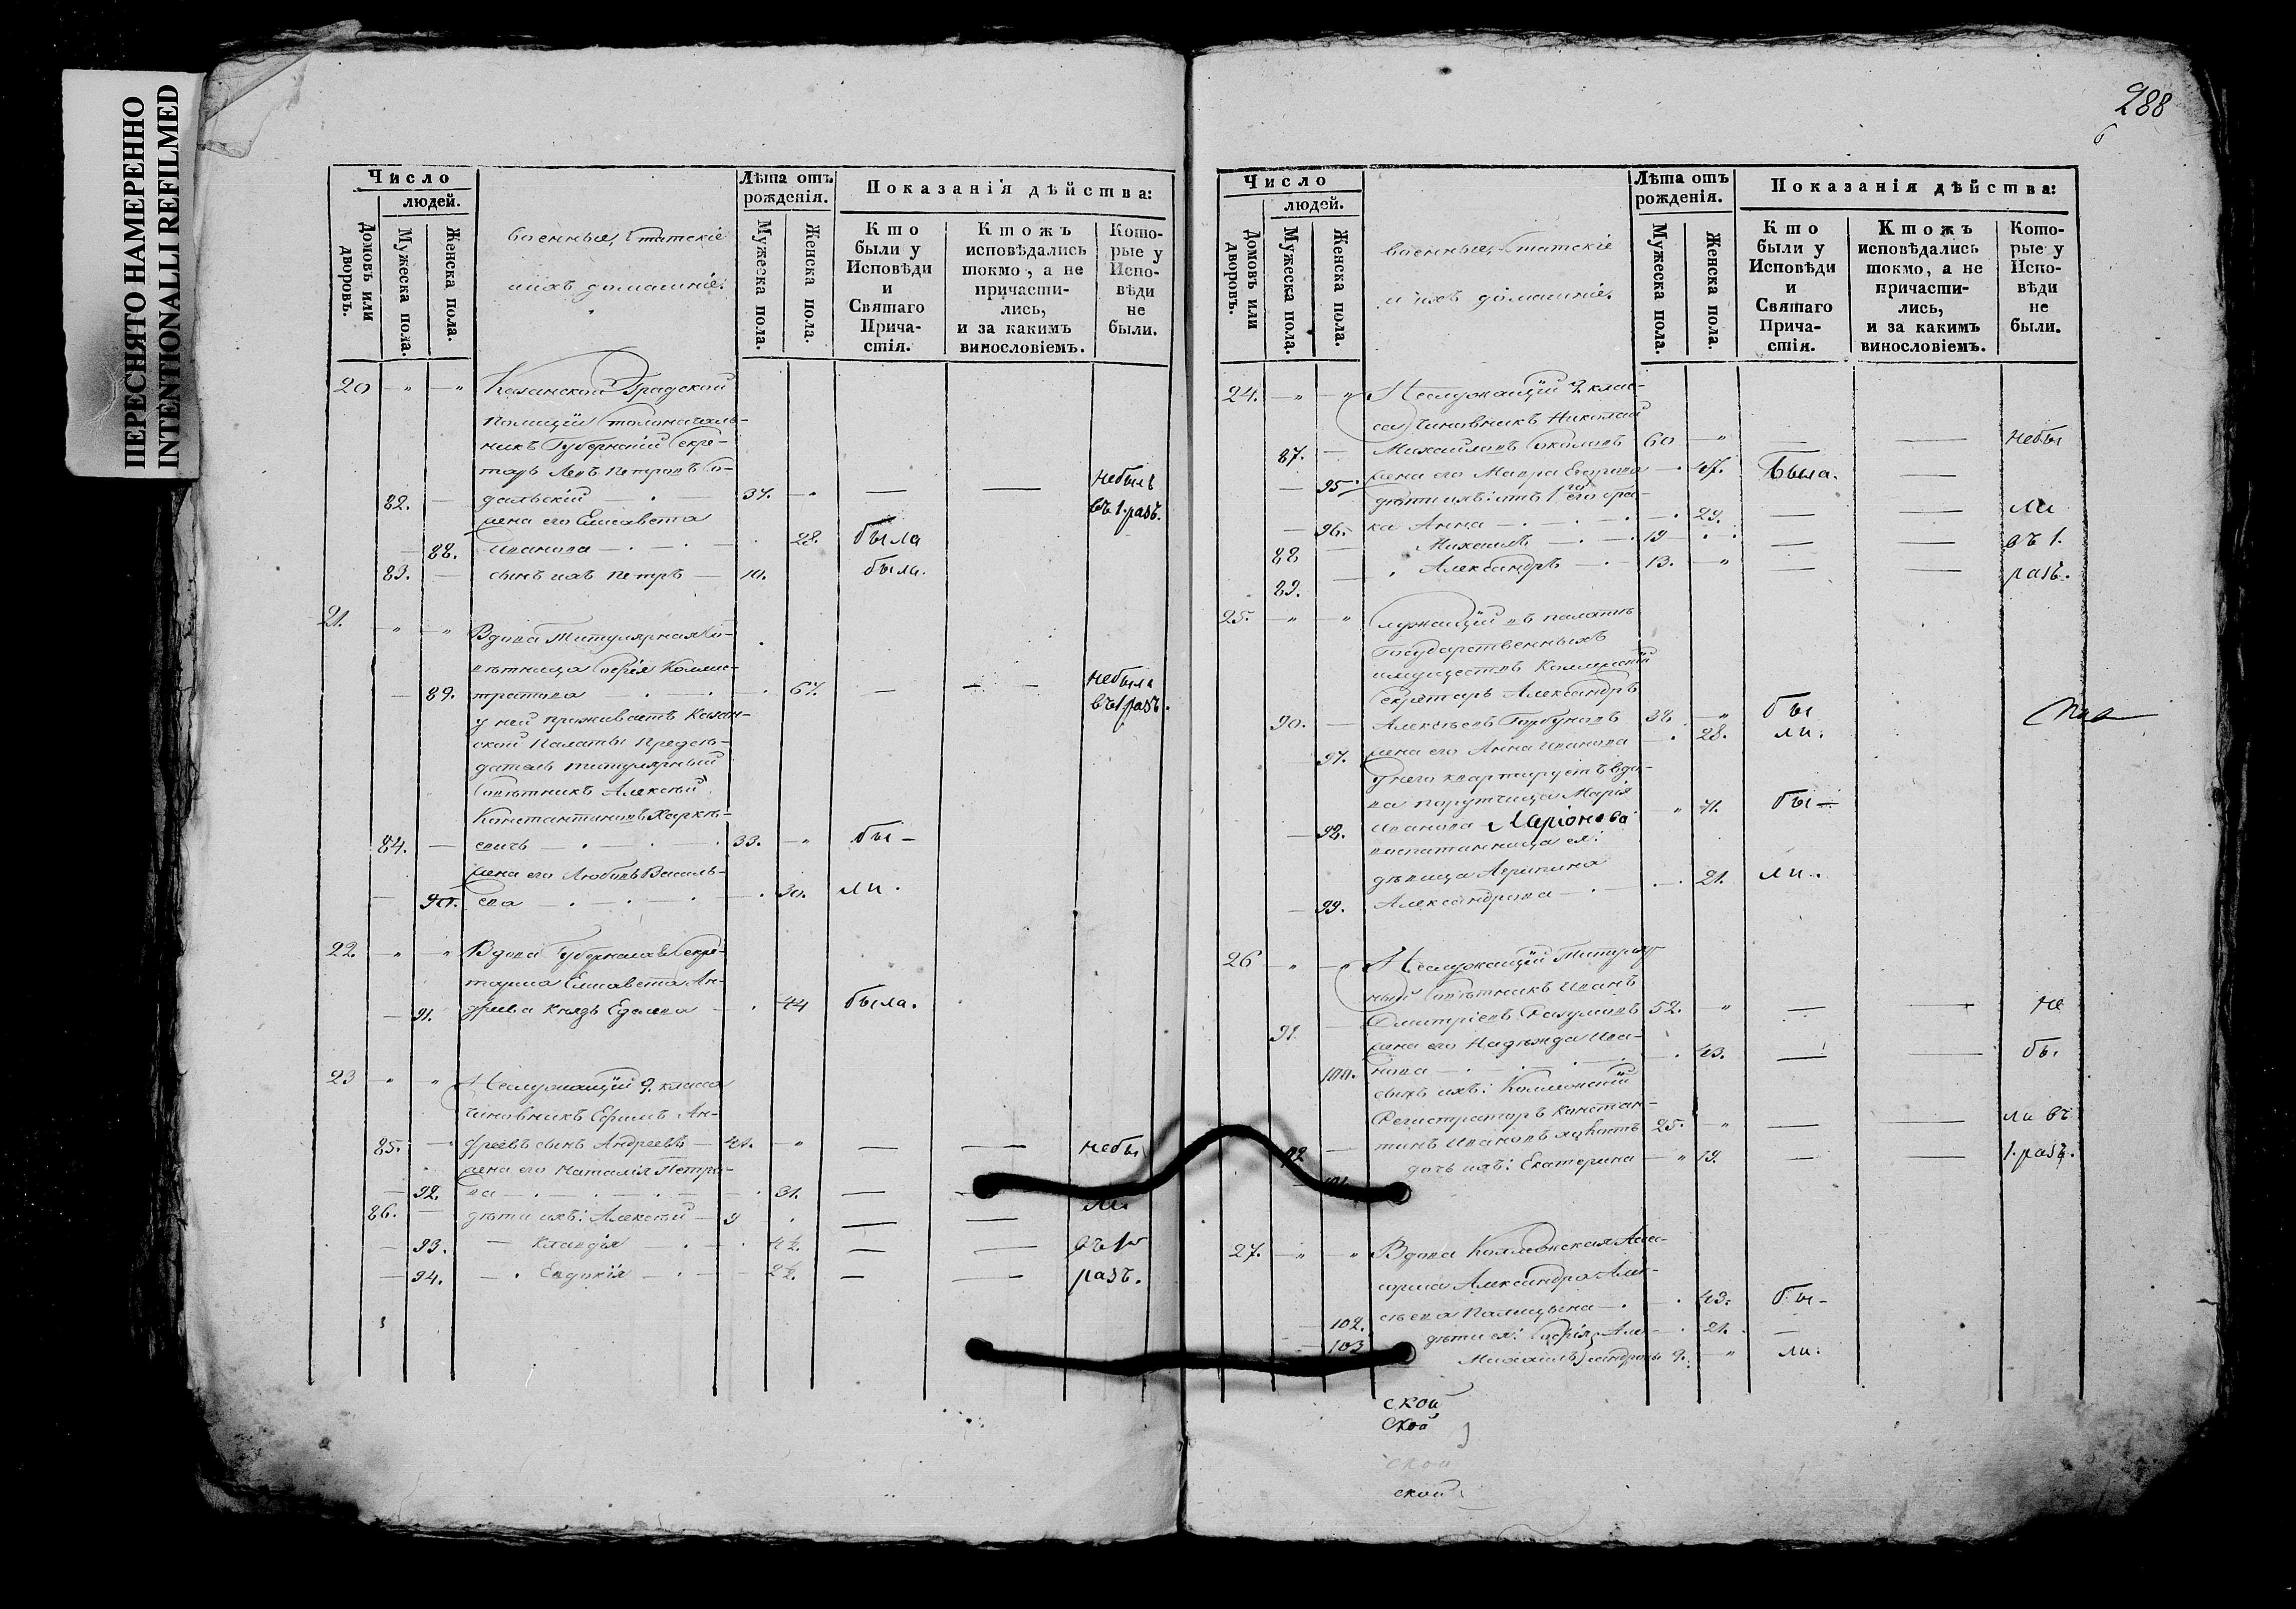 ПЕРЕСНЯТО НАМЕРЕННО
INTENTIONALLI REFILMED
Число
людей.
Домовъ или дворовъ.
Мужеска пола.
Женска пола.
военные, Статскіе
и ихъ домашніе.
Лѣта отъ рожденія.
Мужеска пола.
Женска пола.
Показанія дѣйства:
Кто были у Исповѣди и Святаго Причастія.
Ктожъ исповѣдались токмо, а не причастились, и за какимъ винословіемъ.
Которые у Исповѣди не были.
20 — " — " Казанской Градской
Полиціи Столоначаль-
никъ Губернскій Секре-
тарь Левъ Петровъ Со-
82. — дальскій — 37. — — — небылъ въ 1. разъ.
жена его Елисавета
— 88. Иванова — 28. была
83. — сынъ ихъ Петръ — 10. были.
21. " — " Вдова Титулярная Со-
вѣтница Софія Коллис-
— 89. тратова — 67. — — небыла въ 1 разъ.
у ней проживаетъ Казан-
ской Палаты Предсѣ-
датель титулярный
Совѣтникъ Алексѣй
Константиновъ Харкѣ-
84. — евичъ — 33. — " бы —
жена его Любовь Василь-
— 90. ева — 30. ли.
22. — " — " Вдова Губернская Секре-
тарша Елисавета Ан-
— 91. дреева Князь Еделева — 44 была.
23 — " " Неслужащій 9. класса
чиновникъ Ефимъ Ан-
85. — дреевъ сынъ Андреевъ — 41. — " — — небы
жена его Наталія Петро-
— 92. ва — 31. — — ли
86. — дѣти ихъ: Алексѣй — 9 — —
— 93. — Клавдія — 4½. — — въ 1й
— 94. — Евдокія — 2½. — — разъ.
288
6
Число
людей.
Домовъ или дворовъ.
Мужеска пола.
Женска пола.
военные, Статскіе
и ихъ домашніе.
Лѣта отъ рожденія.
Мужеска пола.
Женска пола.
Показанія дѣйства:
Кто были у Исповѣди и Святаго Причастія.
Ктожъ исповѣдались токмо, а не причастились, и за какимъ винословіемъ.
Которые у Исповѣди не были.
24. — " — " Неслужащій 9 клас-
са чиновникъ Николай
87. — Михайловъ Соколовъ 60 — " — — небы
— 95. жена его Мавра Егорова — 47. Была. —
дѣти ихъ: отъ 1го его бра-
— 96. ка Анна — 29. — — ли
88 — Михаилъ — 19 — — въ 1.
89. — Александръ — 13. — " — — разъ.
25. — " — " Служащій въ палатѣ
Государственныхъ
имуществъ Коллежскій
Секретарь Александръ
90. — Алексѣевъ Горбуновъ 38 — " бы
97. жена его Анна Иванова — 28. ли.
у него квартируетъ вдо-
ва порутчица Марія
— 98. Иванова Ларіонова " 71. бы —
воспитанница ея:
дѣвица Агрипина
— 99. Александрова — 21. ли.
26 — " — " Неслужащій Титуляр
ный Совѣтникъ Иванъ
91. — Дмитріевъ Разумовъ 52. — " — — не
жена его Надежда Ива-
100. нова — 43. — — бы
сынъ ихъ: Коллежскій
Регистраторъ Констан-
92 — тинъ Ивановъ холостъ 25. — " — — ли въ
101. дочь ихъ: Екатерина — " 19. — — 1. разъ.
27. — " — " Вдова Коллежская Асе-
сорша Александра Алек-
102. сѣева Палицына — 43. бы —
— 103 дѣти ея: Софія Алек- 21. —
Михаилъ сандровы 9. — " ли.
ской
ской
ской
ской